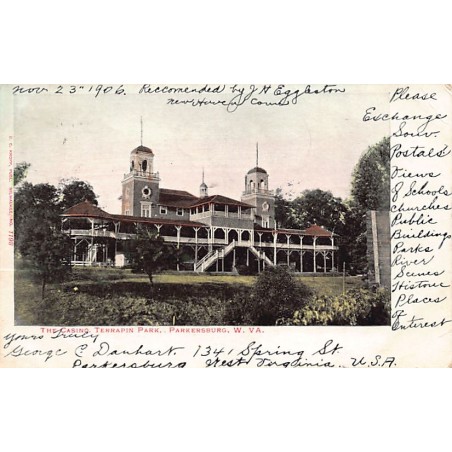 Nov 23rd 1906. Reccomended by J H Eggleston
Please
Exchange
Souv.
Postals
Views
of Schools
churches
Public
Buildings
Parks
River
Scenes
Historic
Places
of
Interest
1798
THE CASINO, TERRAPIN PARK, PARKERSBURG, W. VA.
Yours Truly
George C Danhart. 1341 Spring St.
Parkersburg West Virginia, U.S.A.